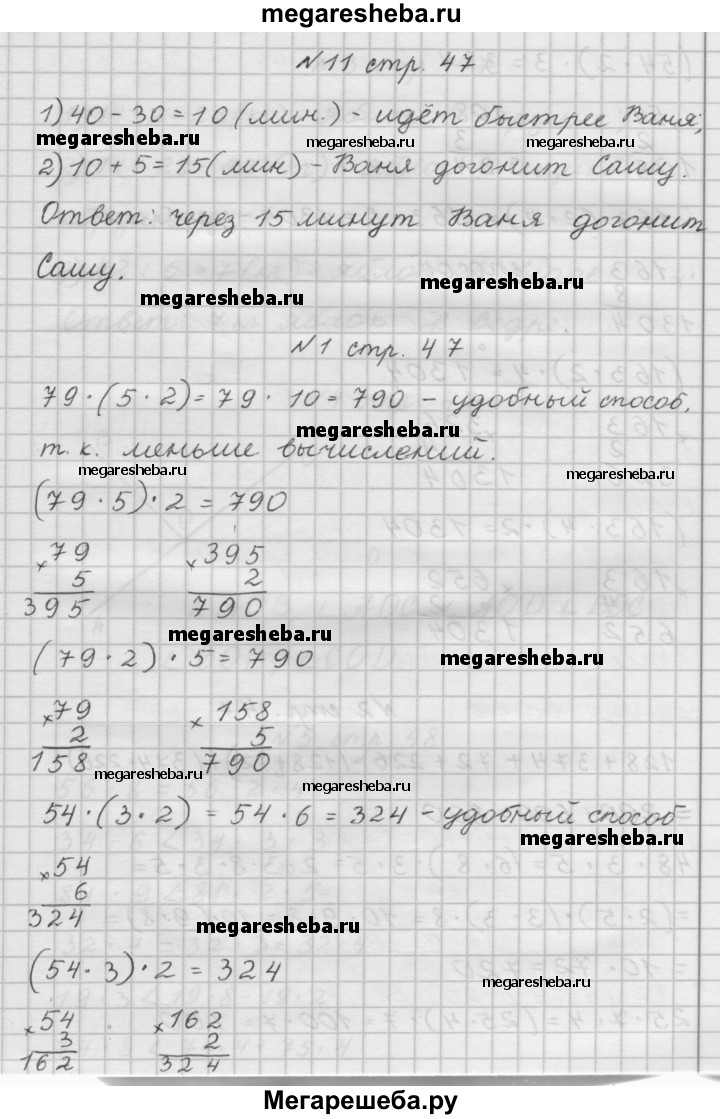 megaresheba.ru
№11 стр. 47
1) 40 - 30 = 10 (мин.) - идёт быстрее Ваня;
megaresheba.ru megaresheba.ru megaresheba.ru
2) 10 + 5 = 15 (мин) - Ваня догонит Сашу.
Ответ: через 15 минут Ваня догонит
Сашу.
megaresheba.ru megaresheba.ru
№1 стр. 47
79 · (5 · 2) = 79 · 10 = 790 - удобный способ,
megaresheba.ru
т. к. меньше вычислений.
megaresheba.ru megaresheba.ru
(79 · 5) · 2 = 790
× 79 × 395
5 2
395 790
megaresheba.ru
(79 · 2) · 5 = 790
megaresheba.ru
× 79 × 158
2 5
158 790
megaresheba.ru megaresheba.ru
54 · (3 · 2) = 54 · 6 = 324 - удобный способ
megaresheba.ru
× 54
6
324
megaresheba.ru
(54 · 3) · 2 = 324
megaresheba.ru
× 54 × 162
3 2
162 324
Мегарешеба.ру